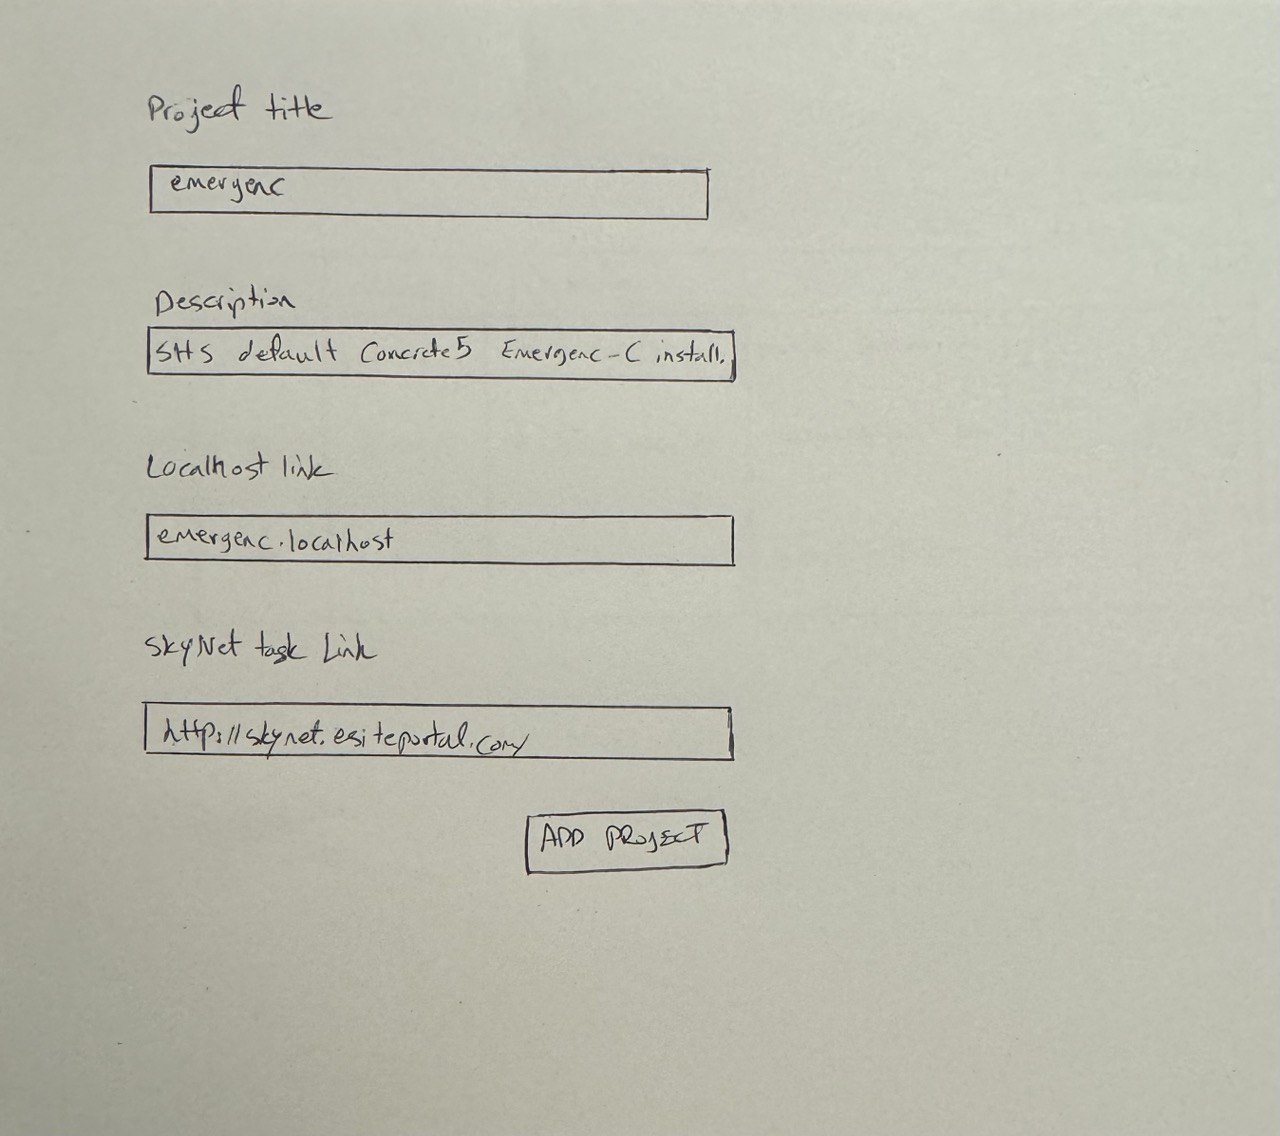 Project title
emergenc
Description
SHS default Concrete5 Emergenc-C install.
Localhost link
emergenc.localhost
SkyNet task Link
http://skynet.esiteportal.com/
ADD PROJECT